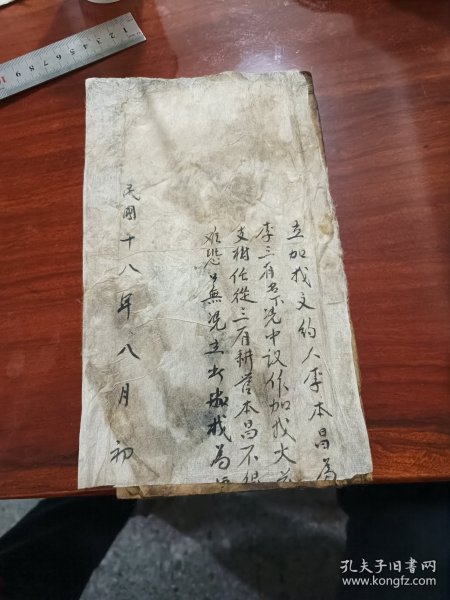 立加找文约人李本昌为
李三有名下凭中议作加找大
支樹任從三有耕菅本昌不得
難憑口無凭立出加找為
民國十八年八月初
孔夫子旧书网
www.kongfz.com